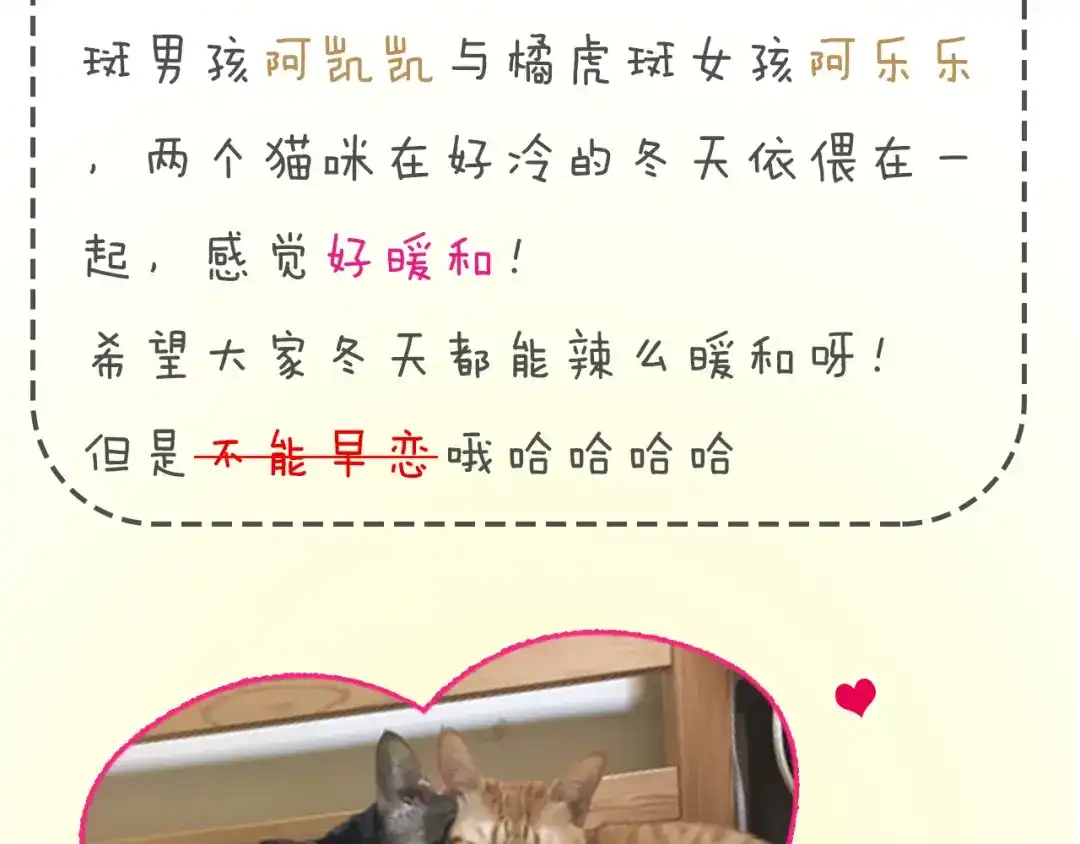 斑男孩阿凯凯与橘虎斑女孩阿乐乐
，两个猫咪在好冷的冬天依偎在一
起，感觉好暖和！
希望大家冬天都能辣么暖和呀！
但是不能早恋哦哈哈哈哈